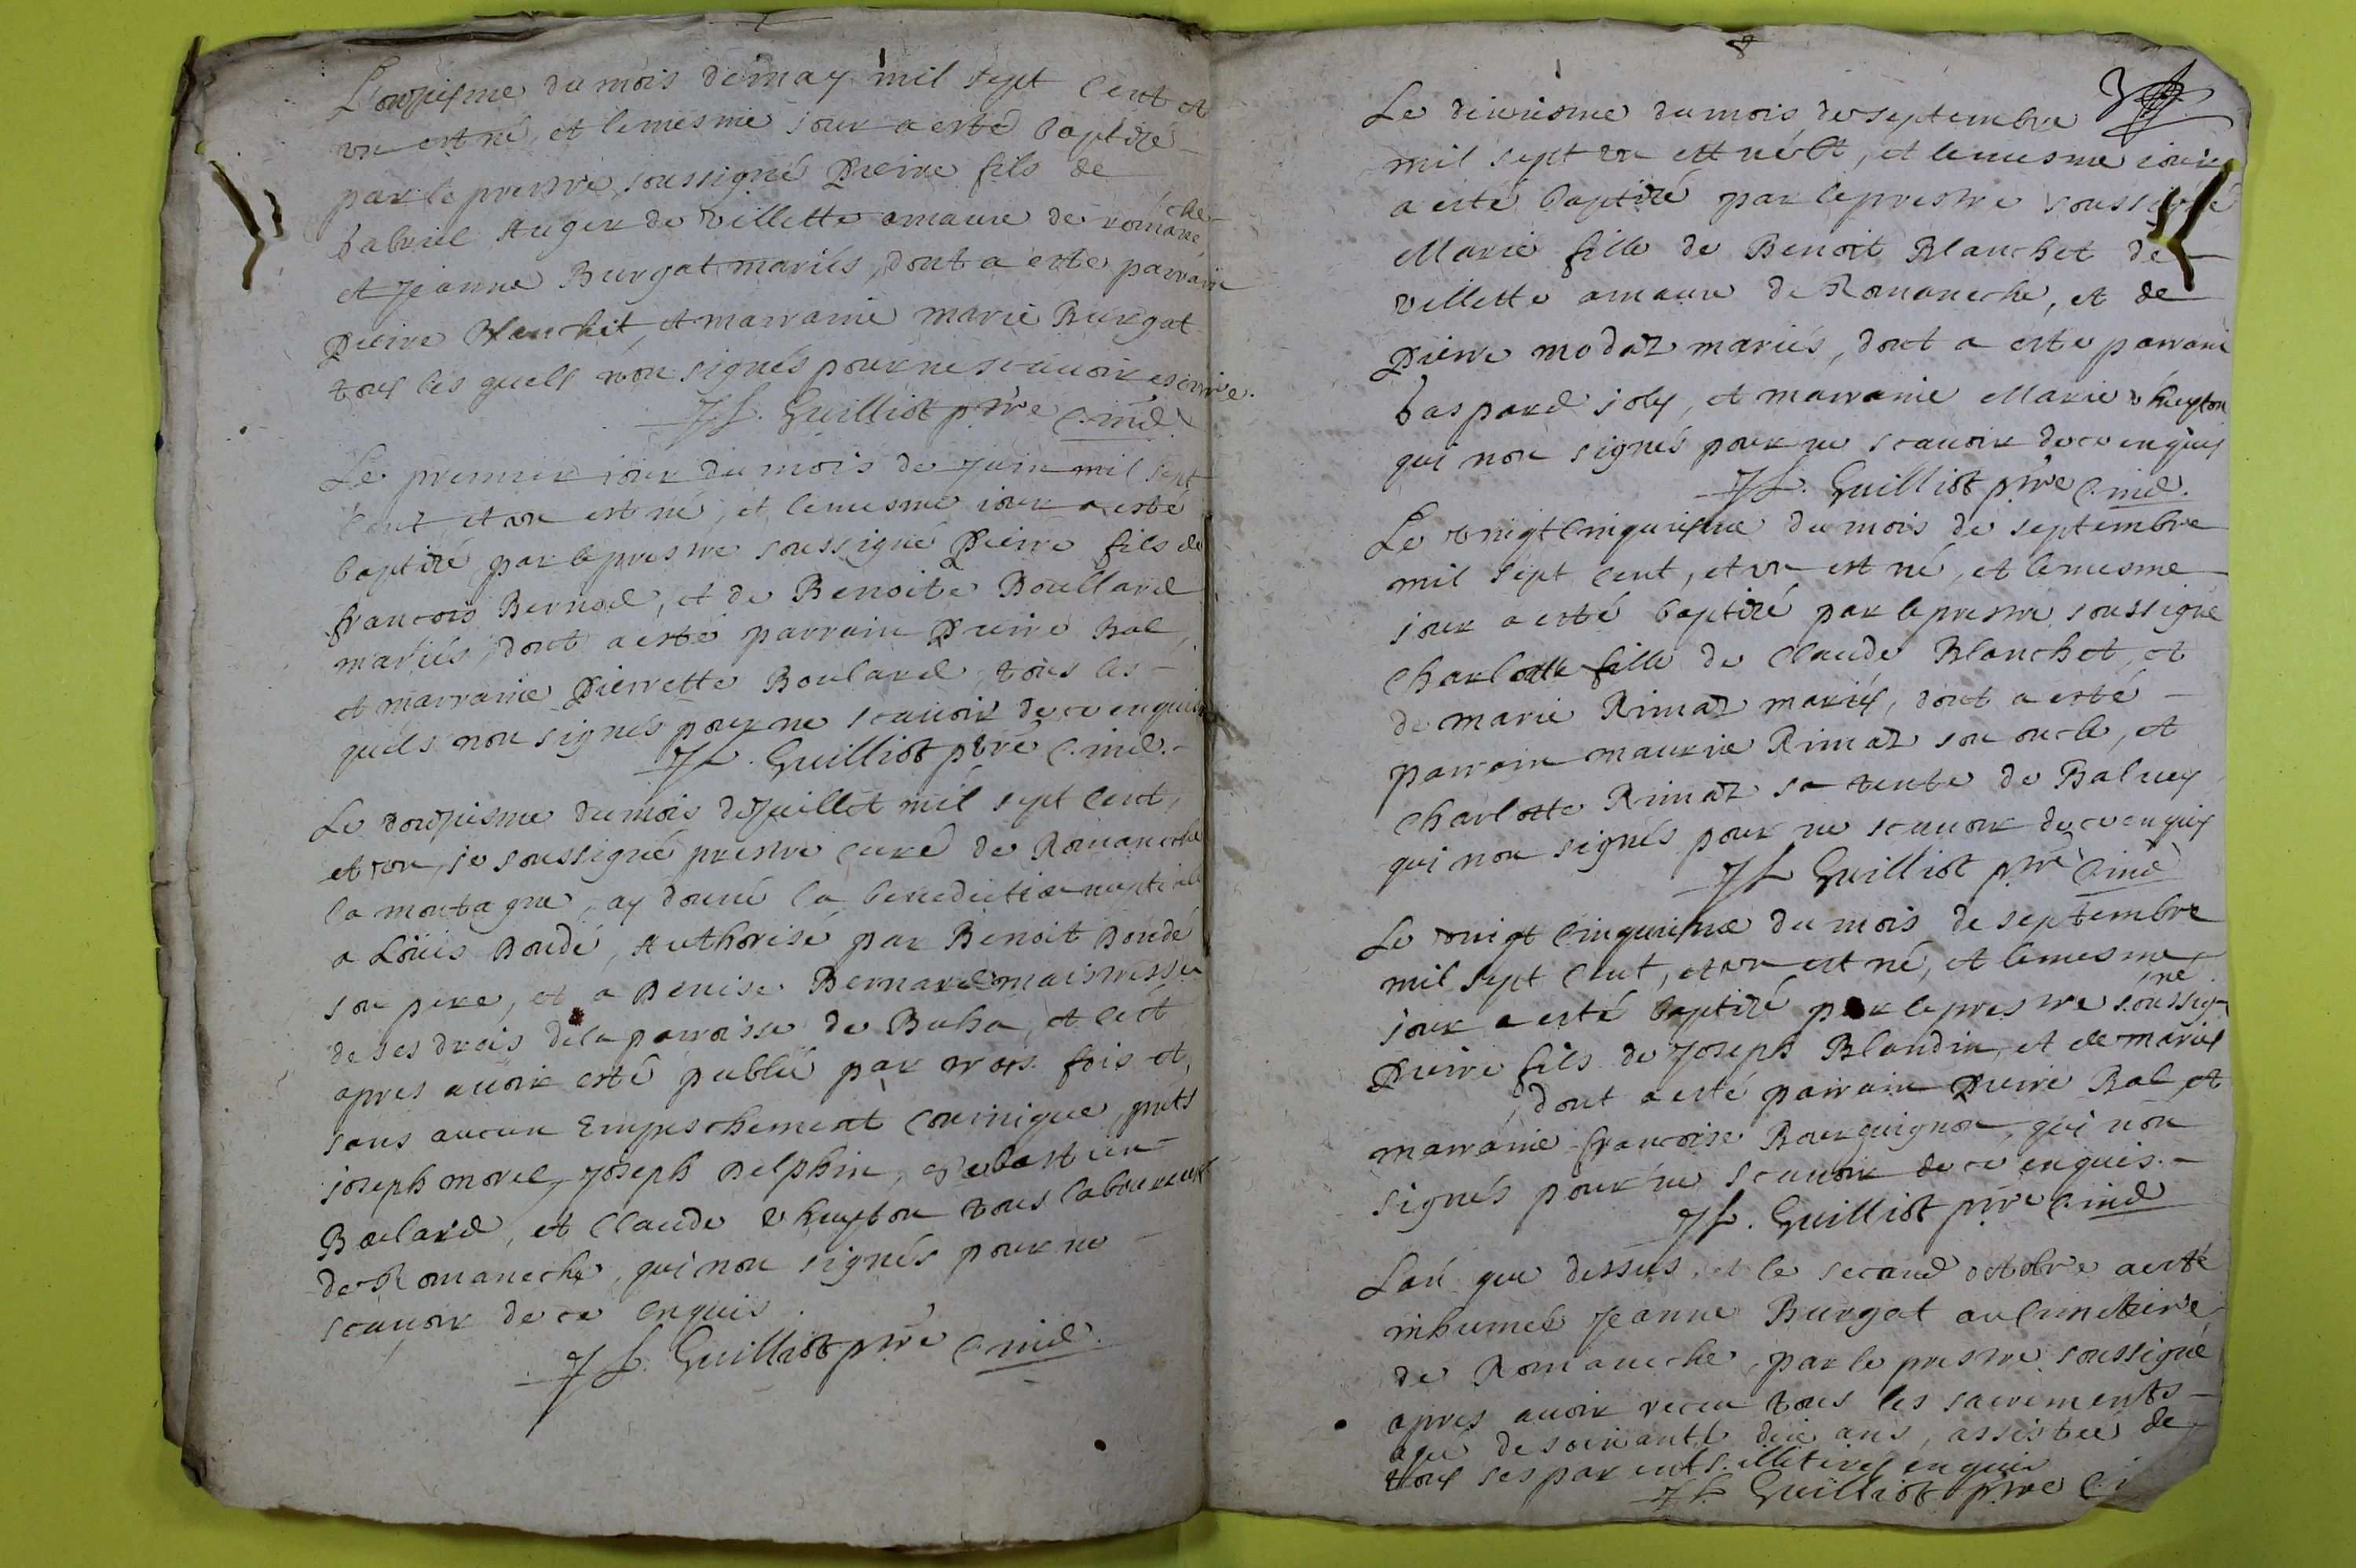 L'onziesme du mois de may mil sept cent et
un est né, et le mesme jour a esté baptizé
par le prestre soussigné Pierre fils de
Gabriel Auger de Villette amaure de romane
che
et Jeanne Burgat mariés, dont a esté parrain
Pierre Blanchet, et marraine marie Burgat
tous les quels non signés pour ne scauoir escrire.
J L. Guilliot p̄tre C. ind.
Le premier iour du mois de Juin mil sept
Cent et un est né, et le mesme iour a esté
baptizé par le prestre soussigné Pierre fils de
françois Bernard, et de Benoite Boullard
mariés, dont a esté parrain Pierre Bal,
et marraine Pierrette Boulard, tous les
quels non signés pour ne scauoir de ce enquis
J L. Guilliot p̄tre C. ind.
Le douziesme du mois de Juillet mil sept Cent,
et un, je soussigné prestre curé de Romaneche
la montagne, ay donné la benediction nuptiale
a Loüis Dondé, Authorisé par Benoit Dondé
son pere, et a Denise Bernard maistresse
de ses drois de la parroisse de Buha, et ce
apres auoir esté publié par trois fois et,
sans aucun Empeschement Connique, p̄nts
joseph morel, Joseph Delphin, Sebastien
Boulard, et Claude theypton tous laboureurs
de Romaneche, qui non signés pour ne
scauoir de ce enquis.
J L. Guilliot p̄tre C. ind.
Le deuxiesme du mois de septembre
mil sept un est né, et le mesme iour
a esté baptizé par le prestre soussigné
Marie fille de Benoit Blanchet de
villette amaure de Romaneche, et de
Pierre modaz mariés, dont a esté parrain
Gaspard joly, et marraine Marie theypton
qui non signés pour ne scauoir de ce enquis
J L. Guilliot p̄tre C. ind.
Le vingt Cinquiesme du mois de septembre
mil sept Cent, et un est né, et le mesme
jour a esté baptizé par le prestre soussigné
Charlotte fille de Claude Blanchet, et
de marie Rimaz mariés, dont a esté
parrain maurice Rimaz son oncle, et
Charlotte Rimaz sa tente de Baluey
qui non signés pour ne scauoir de ce enquis
J L Guilliot p̄tre C ind
Le vingt Cinquiesme du mois de septembre
mil sept Cent, et un est né, et le mesme
jour a esté baptizé par le prestre soussig
né
Pierre fils de Joseph Blondin, et de mariés
, dont a esté parrain Pierre Bal, et
marraine françoise Bourguignon, qui non
signés pour ne scauoir de ce enquis.
J L. Guilliot p̄tre C. ind
L'an que dessus, et le second octobre a esté
inhumée Jeanne Burgat au Cimetiere
de Romaneche, par le prestre soussigné
apres auoir receu tous les sacrements
agé de soixante dix ans, assistée de
tous ses parents illiterés enquis
J L Guilliot p̄tre C. i